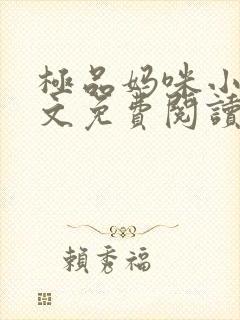 極品妈咪小
文免費閱讀
賴秀福